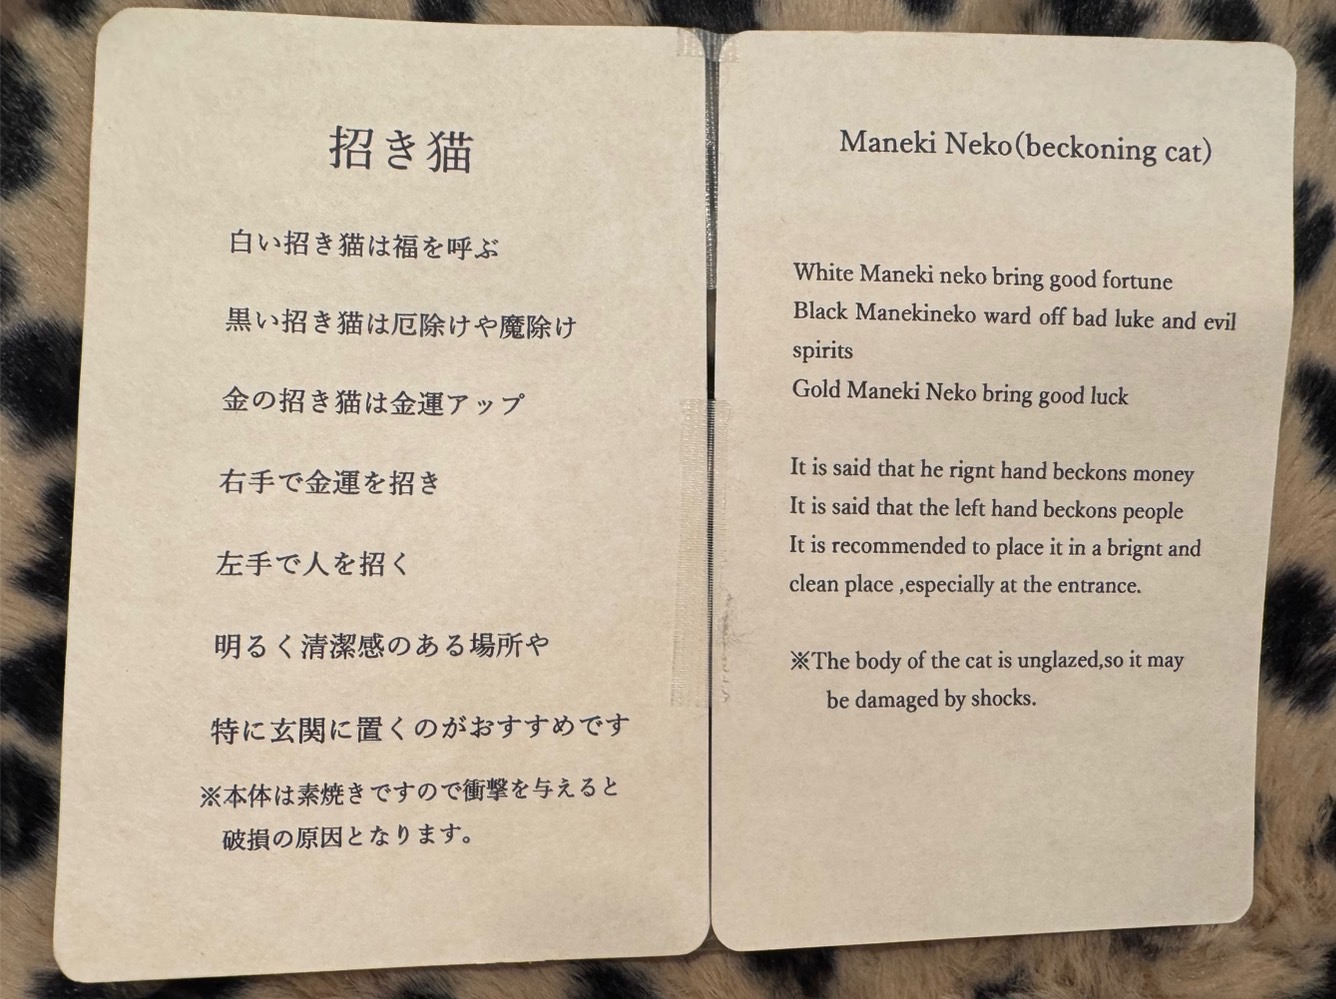 招き猫
白い招き猫は福を呼ぶ
黒い招き猫は厄除けや魔除け
金の招き猫は金運アップ
右手で金運を招き
左手で人を招く
明るく清潔感のある場所や
特に玄関に置くのがおすすめです
※本体は素焼きですので衝撃を与えると
破損の原因となります。
Maneki Neko(beckoning cat)
White Maneki neko bring good fortune
Black Manekineko ward off bad luke and evil
spirits
Gold Maneki Neko bring good luck
It is said that he rignt hand beckons money
It is said that the left hand beckons people
It is recommended to place it in a brignt and
clean place ,especially at the entrance.
※The body of the cat is unglazed,so it may
be damaged by shocks.